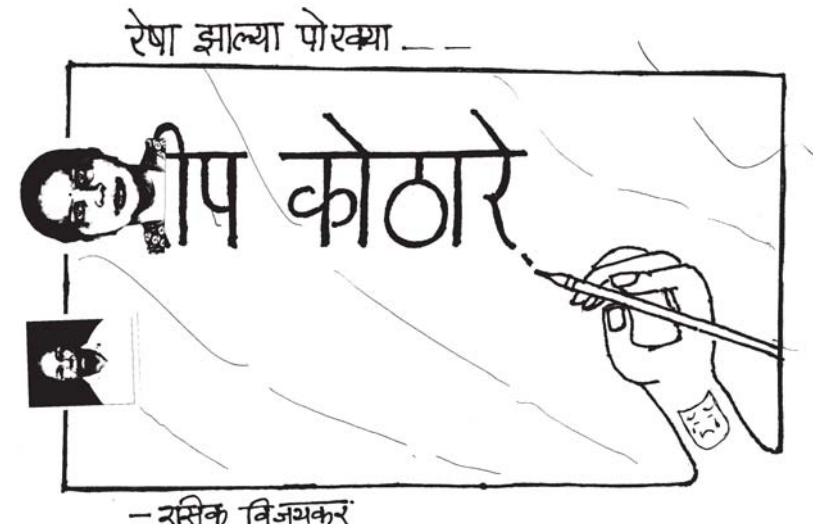 रेषा झाल्या पोरक्या _ _
ीप कोठारे
– रसिक विजयकर